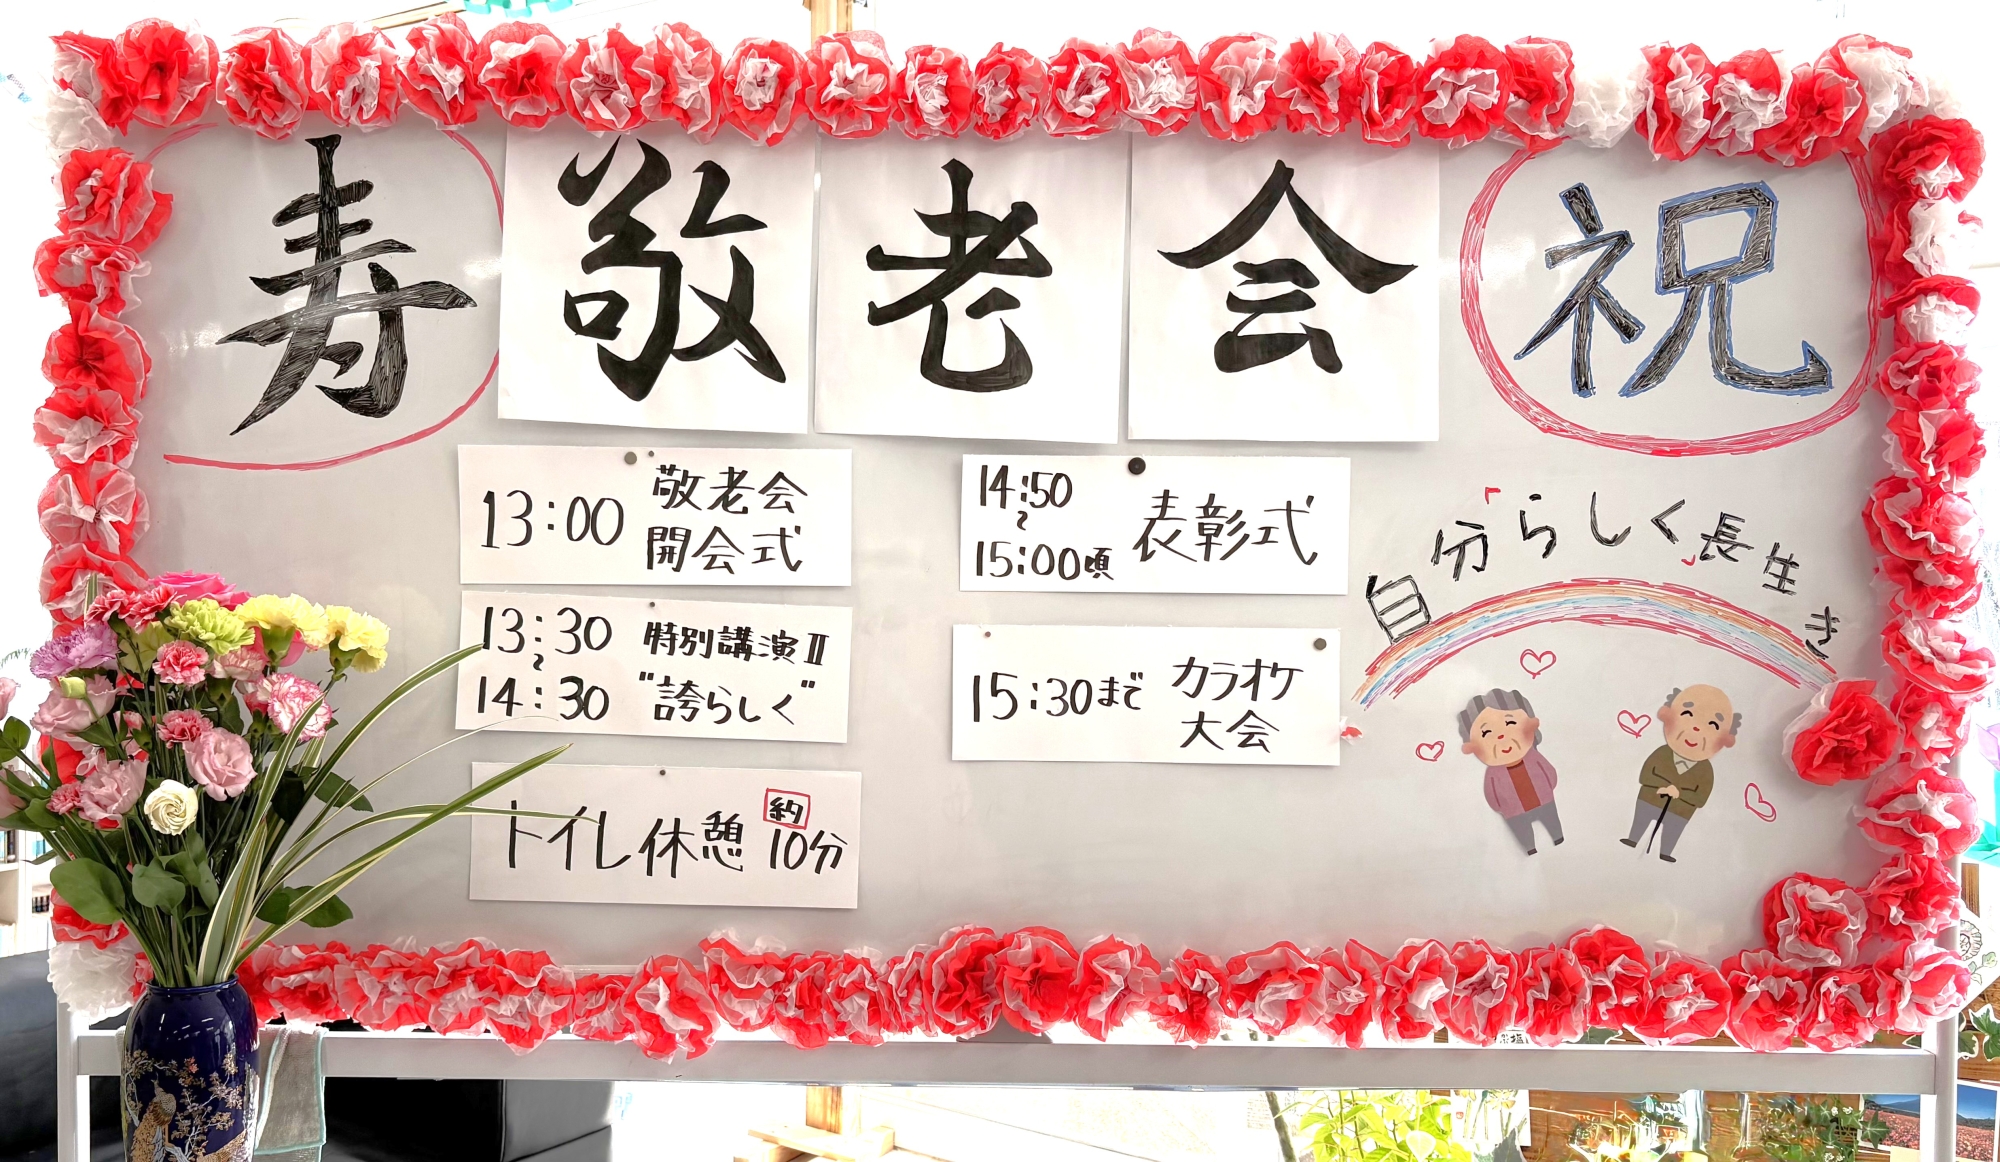 寿 敬老会 祝
13:00 敬老会
開会式
13:30
~
14:30
特別講演Ⅱ
"誇らしく"
トイレ休憩 約10分
14:50
~
15:00頃
表彰式
15:30まで
カラオケ
大会
「自分らしく」長生き